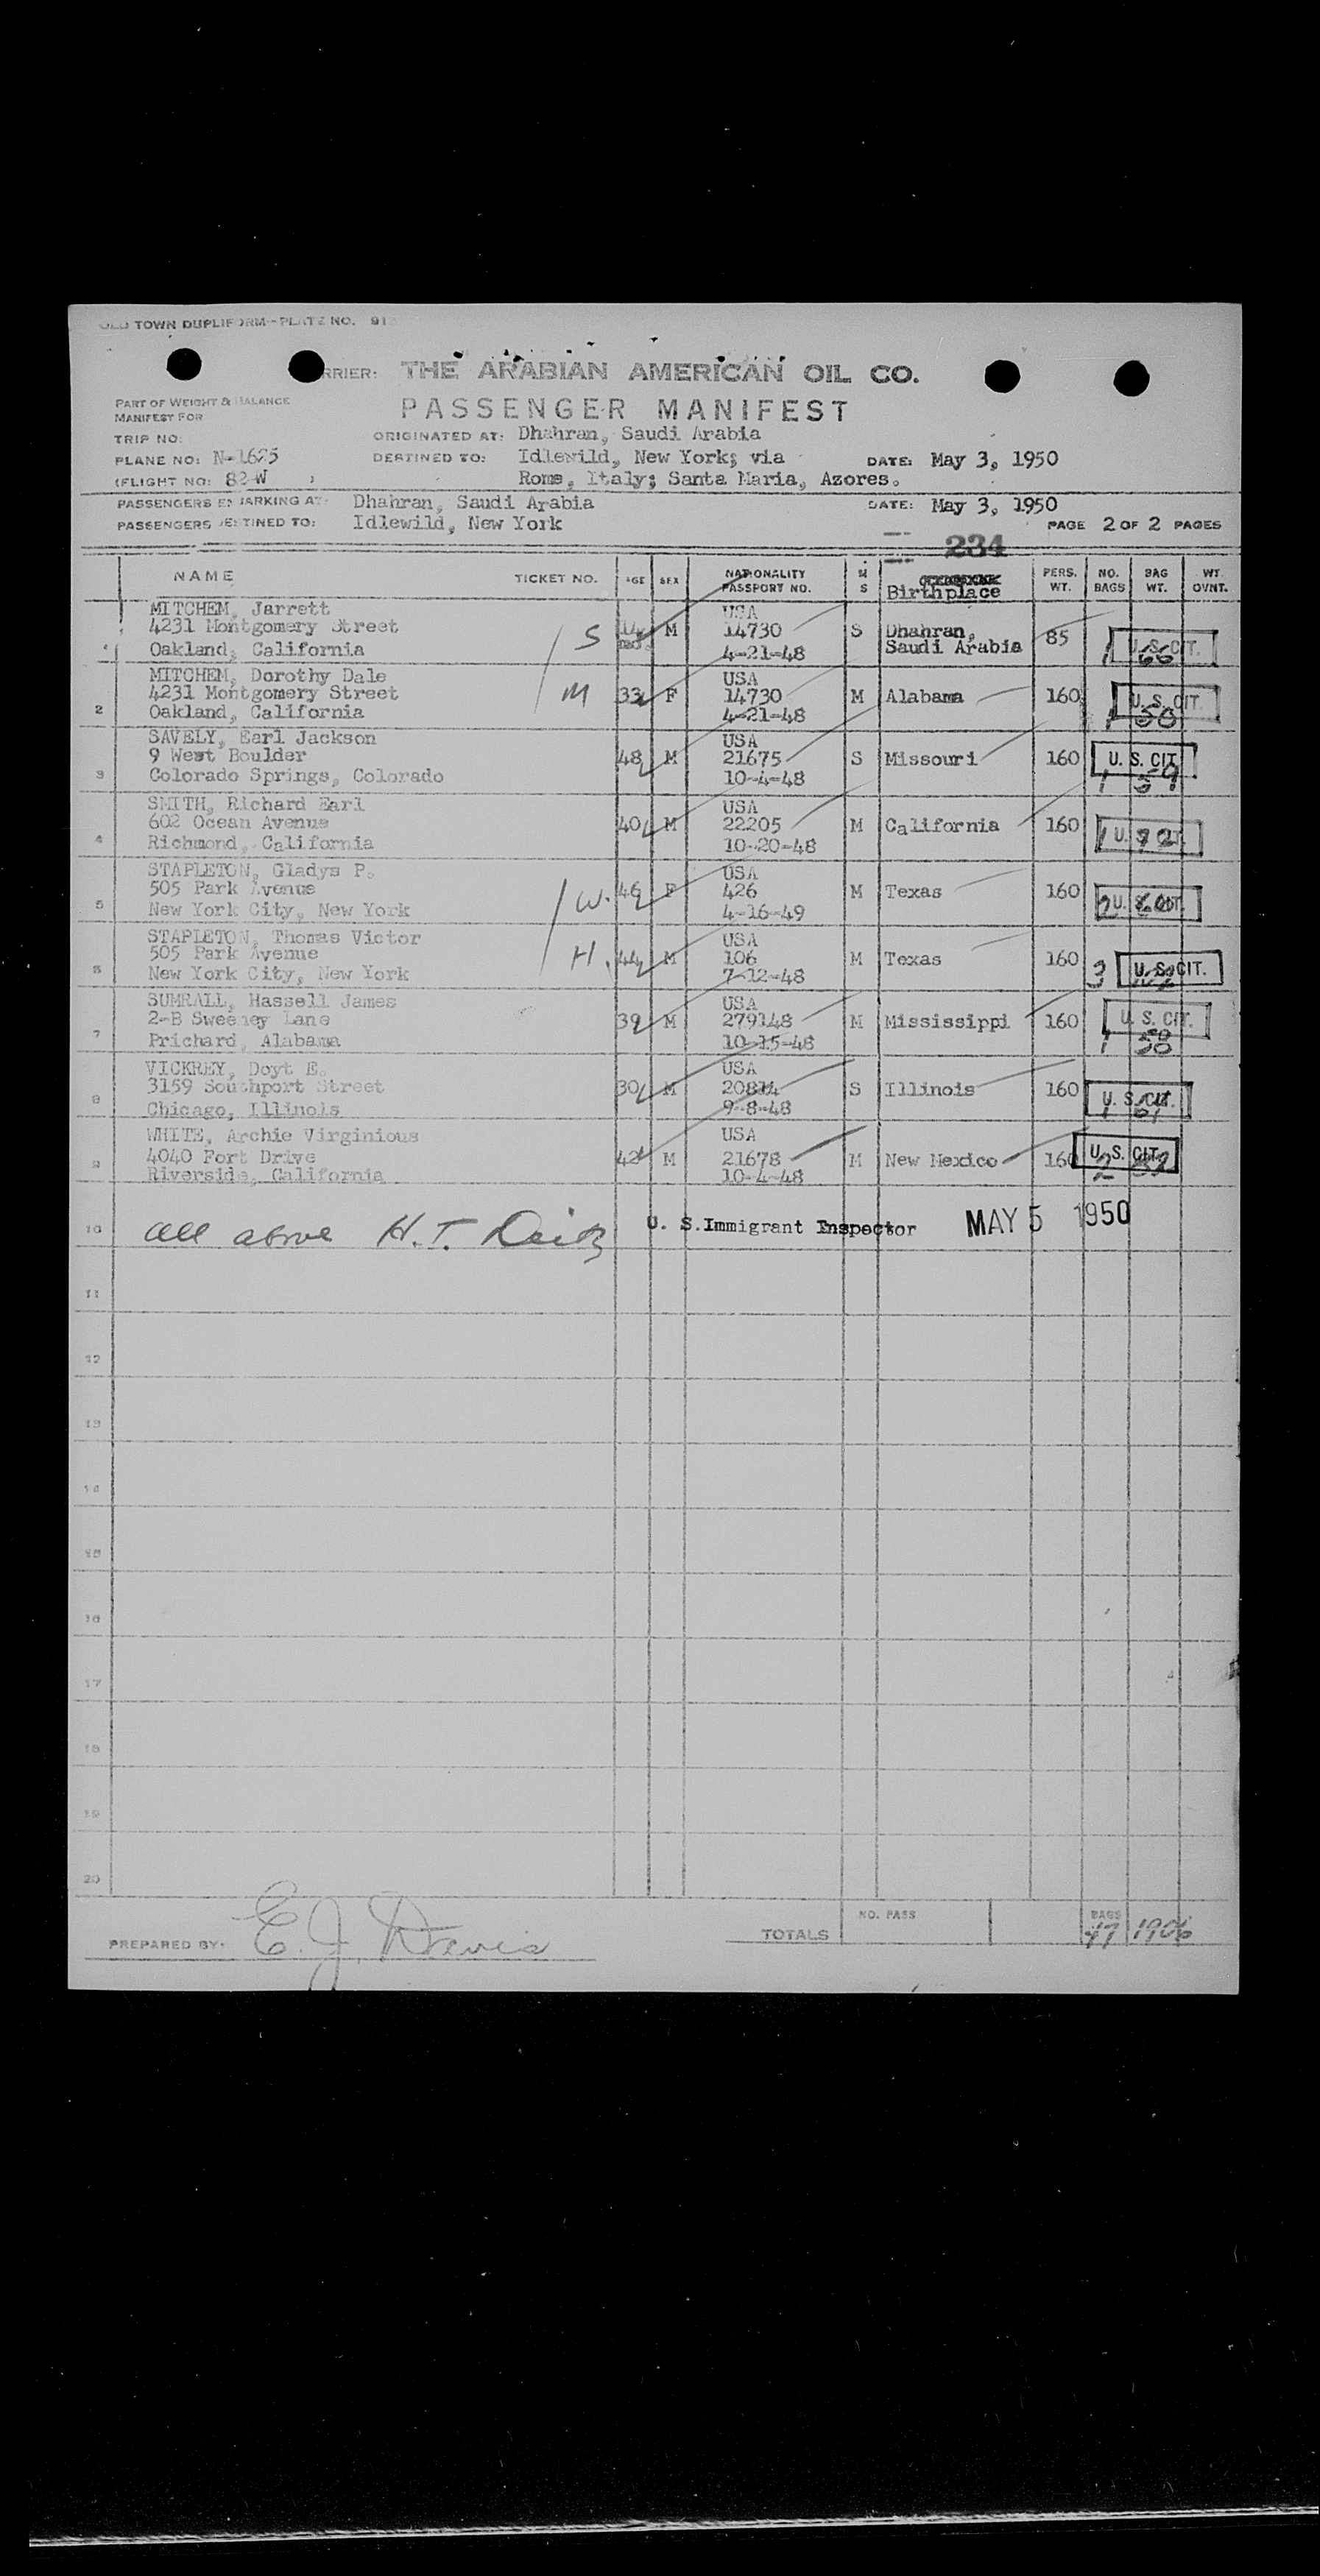 OLD TOWN DUPLIFORM--PLATE NO. 91
RRIER: THE ARABIAN AMERICAN OIL CO.
PART OF WEIGHT & BALANCE
MANIFEST FOR
PASSENGER MANIFEST
TRIP NO:
ORIGINATED AT: Dhahran, Saudi Arabia
PLANE NO: N-1625
DESTINED TO: Idlewild, New York; via DATE: May 3, 1950
(FLIGHT NO: 82-W )
Rome, Italy; Santa Maria, Azores.
PASSENGERS EMBARKING AT: Dhahran, Saudi Arabia DATE: May 3, 1950
PASSENGERS DESTINED TO: Idlewild, New York PAGE 2 OF 2 PAGES
234
NAME TICKET NO. AGE SEX NATIONALITY PASSPORT NO. M S Birthplace PERS. WT. NO. BAGS BAG WT. WT. OVNT.
MITCHEM, Jarrett USA
1 4231 Montgomery Street S 14 M 14730 S Dhahran, Saudi Arabia 85 1 66 U. S. CIT.
Oakland, California 4-21-48
MITCHEM, Dorothy Dale USA
4231 Montgomery Street M 33 F 14730 M Alabama 160 U. S. CIT.
2 Oakland, California 4-21-48 1 50
SAVELY, Earl Jackson USA
9 West Boulder 48 M 21675 S Missouri 160 U. S. CIT.
3 Colorado Springs, Colorado 10-4-48 1 59
SMITH, Richard Earl USA
602 Ocean Avenue 40 M 22205 M California 160 1 U.
4 Richmond, California 10-20-48
STAPLETON, Gladys P. USA
505 Park Avenue W. F 426 M Texas 160 2 U.
5 New York City, New York 4-16-49
STAPLETON, Thomas Victor USA
505 Park Avenue H. 44 M 106 M Texas 160 3 U. S. CIT.
6 New York City, New York 7-12-48
SUMRALL, Hassell James USA
2-B Sweeney Lane 39 M 279148 M Mississippi 160 U. S. CIT.
7 Prichard, Alabama 10-15-48 1 50
VICKREY, Doyt E. USA
3159 Southport Street 30 M 20814 S Illinois 160 U. S. CIT.
8 Chicago, Illinois 9-8-48 1 61
WHITE, Archie Virginious USA
9 4040 Fort Drive 42 M 21678 M New Mexico 160 U. S. CIT.
Riverside, California 10-4-48 2
10 all above H.T. U. S. Immigrant Inspector MAY 5 1950
11
12
13
14
15
16
17
18
19
20
PREPARED BY: E. J. Davis TOTALS NO. PASS BAGS 47 1906